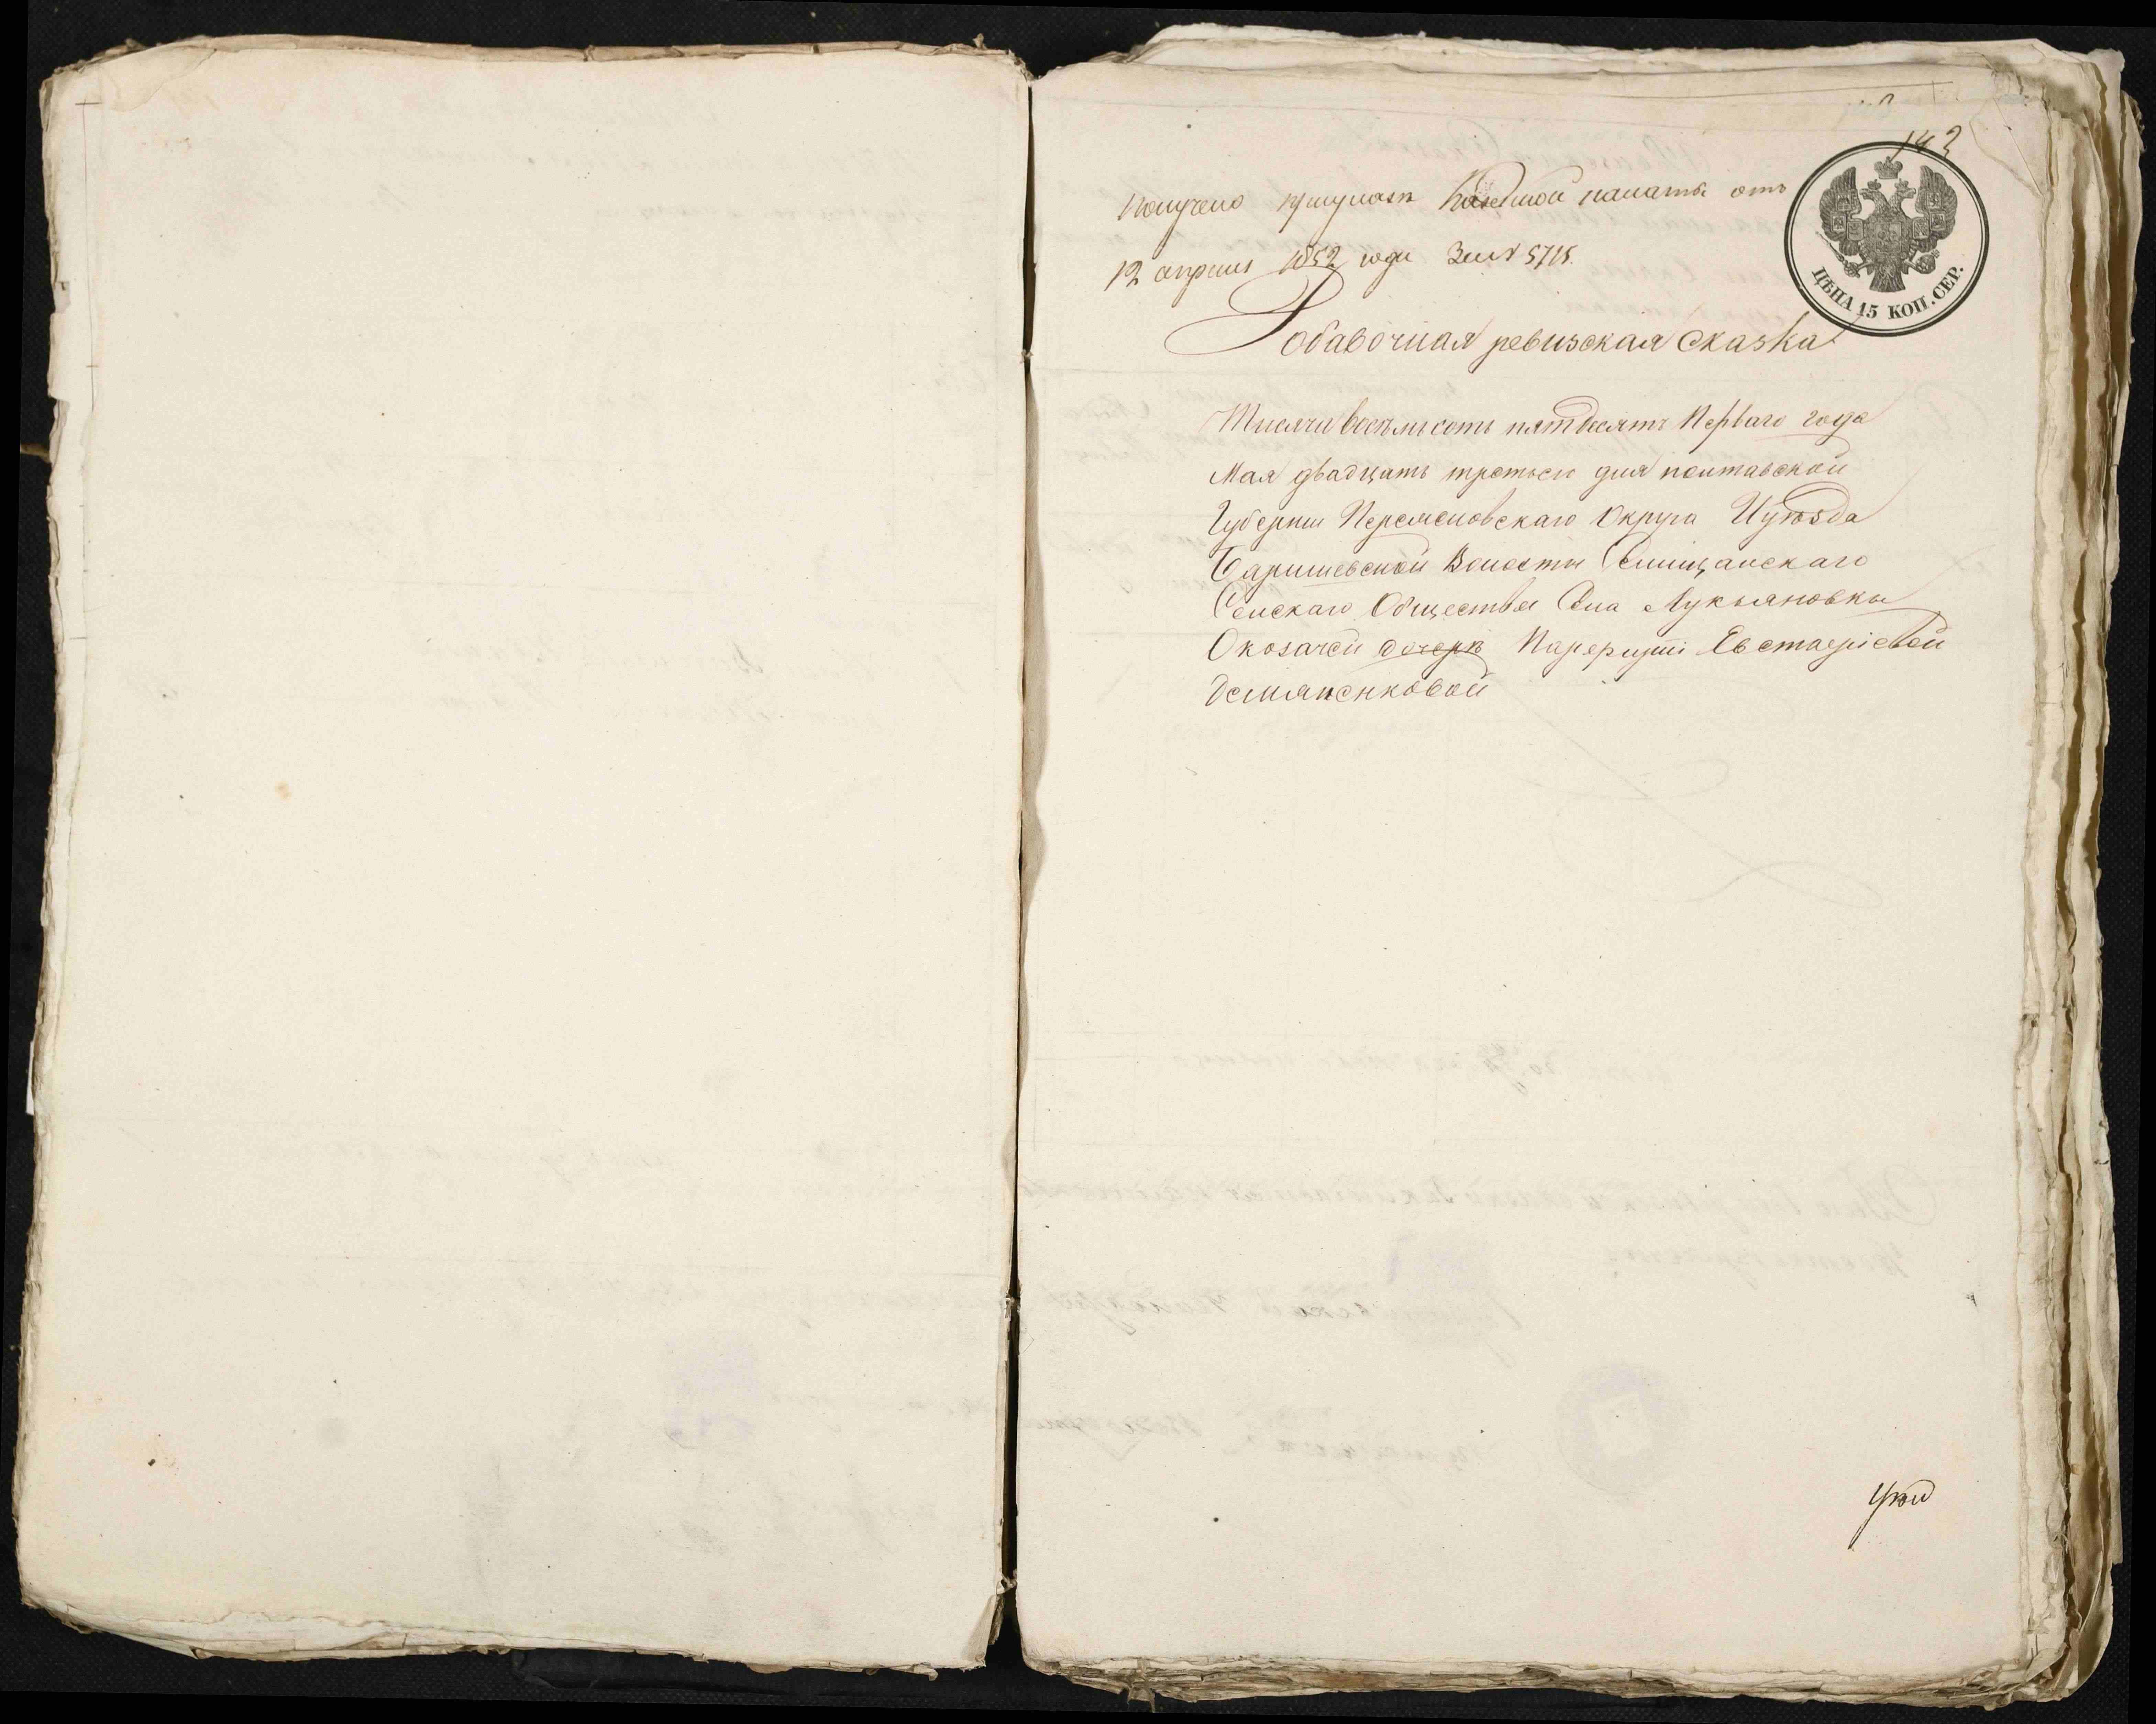 143
Получено при указѣ Казенной палаты отъ
12 апрѣля 1852 года За № 5715.
ЦѢНА 15 КОП. СЕР.
Добавочная ревизская сказка
Тысяча восѣмьсотъ пятдесятъ Перваго года
Мая двадцать третьего дня полтавской
Губернии Переяславскаго Округа И уѣзда
Баришевской Волости Селищанскаго
Селскаго Общества Села Лукьяновки
О козачей дочерѣ Евстафіевой
Демяненковой